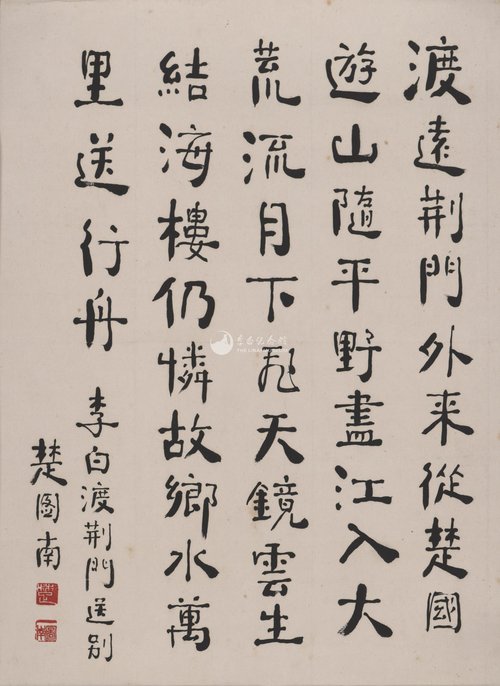 渡遠荆門外来從楚國
遊山隨平野盡江入大
荒流月下飛天鏡雲生
結海樓仍憐故鄉水萬
里送行舟 李白渡荆門送别
楚圖南